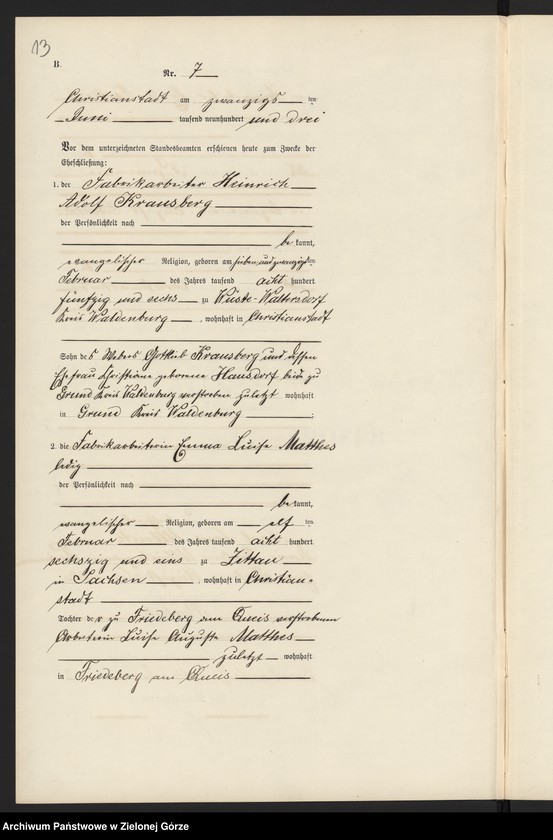 13
B.
Nr. 7
Christianstadt am zwanzigs ten
Juni tausend neunhundert und drei
Vor dem unterzeichneten Standesbeamten erschienen heute zum Zwecke der
Eheschließung:
1. der Fabrikarbeiter Heinrich
Adolf Krausberg
der Persönlichkeit nach
be kannt,
evangelischer Religion, geboren am sieben und zwanzigsten
Februar des Jahres tausend acht hundert
fünfzig und sechs zu Wüste-Waltersdorf
Kreis Waldenburg, wohnhaft in Christianstadt
Sohn des Webers Gottlieb Krausberg und dessen
Ehefrau Christiane geborene Hausdorf beide zu
Grund Kreis Waldenburg verstorben zuletzt wohnhaft
in Grund Kreis Waldenburg.
2. die Fabrikarbeiterin Emma Luise Matthes
ledig
der Persönlichkeit nach
be kannt,
evangelischer Religion, geboren am elf ten
Februar des Jahres tausend acht hundert
sechszig und eins zu Zittau
in Sachsen, wohnhaft in Christian=
stadt
Tochter der zu Friedeberg am Queis verstorbenen
Arbeiterin Luise Auguste Matthes
zuletzt wohnhaft
in Friedeberg am Queis
Archiwum Państwowe w Zielonej Górze